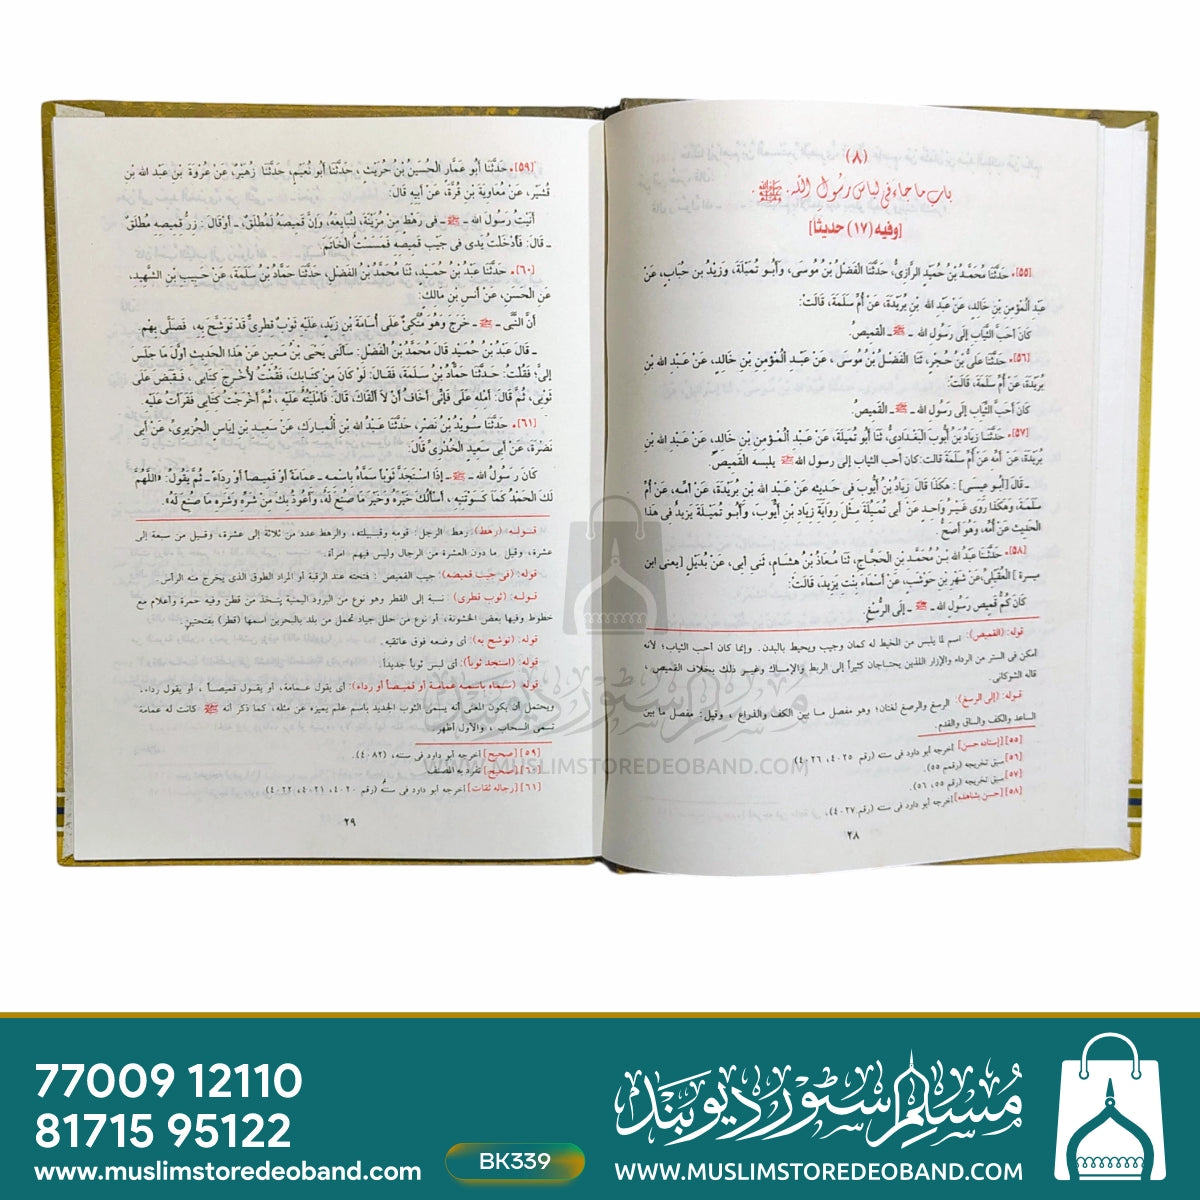 (٨)
باب ما جاء في لباس رسول الله ﷺ
[وفيه (١٧) حديثاً]
[٥٥]، حَدَّثَنَا مُحَمَّدُ بْنُ حُمَيْدٍ الرَّازِىُّ، حَدَّثَنَا الْفَضْلُ بْنُ مُوسَى، وَأَبُو تُمَيْلَةَ، وَزَيْدُ بْنُ حُبَابٍ، عَنْ
عَبْدِ الْمُؤْمِنِ بْنِ خَالِدٍ، عَنْ عَبْدِ اللهِ بْنِ بُرَيْدَةَ، عَنْ أُمِّ سَلَمَةَ، قَالَتْ:
كَانَ أَحَبَّ الثِّيَابِ إِلَى رَسُولِ اللهِ ـ ﷺ ـ الْقَمِيصُ.
[٥٦]، حَدَّثَنَا عَلِىُّ بْنُ حُجْرٍ، ثَنَا الْفَضْلُ بْنُ مُوسَى، عَنْ عَبْدِ الْمُؤْمِنِ بْنِ خَالِدٍ، عَنْ عَبْدِ اللهِ بْنِ
بُرَيْدَةَ، عَنْ أُمِّ سَلَمَةَ، قَالَتْ:
كَانَ أَحَبَّ الثِّيَابِ إِلَى رَسُولِ اللهِ ـ ﷺ ـ الْقَمِيصُ.
[٥٧]، حَدَّثَنَا زِيَادُ بْنُ أَيُّوبَ الْبَغْدَادِىُّ، ثَنَا أَبُو تُمَيْلَةَ، عَنْ عَبْدِ الْمُؤْمِنِ بْنِ خَالِدٍ، عَنْ عَبْدِ اللهِ بْنِ
بُرَيْدَةَ، عَنْ أُمِّهِ عَنْ أُمِّ سَلَمَةَ قالت: كان أحب الثياب إلى رسول الله ﷺ يلبسه القَمِيصَ.
ـ قَالَ [أبو عيسى]: هكَذَا قَالَ زِيَادُ بْنُ أَيُّوبَ فِى حَدِيثِهِ عَنْ عَبْدِ اللهِ بْنِ بُرَيْدَةَ، عَنْ أُمِّهِ، عَنْ أُمِّ
سَلَمَةَ، وَهكَذَا رَوَى غَيْرُ وَاحِدٍ عَنْ أَبِى تُمَيْلَةَ مِثْلَ رِوَايَةِ زِيَادِ بْنِ أَيُّوبَ، وَأَبُو تُمَيْلَةَ يَزِيدُ فِى هذَا
الْحَدِيثِ عَنْ أُمِّهِ، وَهُوَ أَصَحُّ.
[٥٨]، حَدَّثَنَا عَبْدُ اللهِ بْنُ مُحَمَّدِ بْنِ الْحَجَّاجِ، ثَنَا مُعَاذُ بْنُ هِشَامٍ، ثَنِى أَبِى، عَنْ بُدَيْلٍ [يعنى ابن
ميسرة] الْعُقَيْلِىِّ، عَنْ شَهْرِ بْنِ حَوْشَبٍ، عَنْ أَسْمَاءَ بِنْتِ يَزِيدَ، قَالَتْ:
كَانَ كُمُّ قَمِيصِ رَسُولِ اللهِ ـ ﷺ ـ إِلَى الرُّسْغِ.
قوله: (القميص): اسم لما يلبس من المخيط له كمان وجيب ويحيط بالبدن. وإنما كان أحب الثياب؛ لأنه
أمكن فى الستر من الرداء والإزار اللذين يحتاجان كثيراً إلى الربط والإمساك وغير ذلك بخلاف القميص،
قاله الشوكانى.
قوله: (إلى الرسغ): الرسغ والرصغ لغتان؛ وهو مفصل ما بين الكف والذراع، وقيل: مفصل ما بين
الساعد والكف والساق والقدم.
[٥٥] [إسناده حسن] أخرجه أبو داود فى سننه (رقم ٤٠٢٥، ٤٠٢٦).
[٥٦] سبق تخريجه (رقم ٥٥).
[٥٧] سبق تخريجه (رقم ٥٥، ٥٦).
[٥٨] [حسن بشاهده] أخرجه أبو داود فى سننه (رقم ٤٠٢٧)،
٢٨
[٥٩]، حَدَّثَنَا أَبُو عَمَّارٍ الْحُسَيْنُ بْنُ حُرَيْثٍ، حَدَّثَنَا أَبُو نُعَيْمٍ، حَدَّثَنَا زُهَيْرٌ، عَنْ عُرْوَةَ بْنِ عَبْدِ اللهِ بْنِ
قُشَيْرٍ، عَنْ مُعَاوِيَةَ بْنِ قُرَّةَ، عَنْ أَبِيهِ قَالَ:
أَتَيْتُ رَسُولَ اللهِ ـ ﷺ ـ فِى رَهْطٍ مِنْ مُزَيْنَةَ، لِنُبَايِعَهُ، وَإِنَّ قَمِيصَهُ لَمُطْلَقٌ، ـ أَوْ قَالَ: زِرُّ قَمِيصِهِ مُطْلَقٌ
ـ قَالَ: فَأَدْخَلْتُ يَدِى فِى جَيْبِ قَمِيصِهِ فَمَسَسْتُ الْخَاتَمَ.
[٦٠]، حَدَّثَنَا عَبْدُ بْنُ حُمَيْدٍ، ثَنَا مُحَمَّدُ بْنُ الْفَضْلِ، حَدَّثَنَا حَمَّادُ بْنُ سَلَمَةَ، عَنْ حَبِيبِ بْنِ الشَّهِيدِ،
عَنِ الْحَسَنِ، عَنْ أَنَسِ بْنِ مَالِكٍ:
أَنَّ النَّبِىَّ ـ ﷺ ـ خَرَجَ وَهُوَ مُتَّكِئٌ عَلَى أُسَامَةَ بْنِ زَيْدٍ، عَلَيْهِ ثَوْبٌ قِطْرِىٌّ قَدْ تَوَشَّحَ بِهِ، فَصَلَّى بِهِمْ.
ـ قَالَ عَبْدُ بْنُ حُمَيْدٍ قَالَ مُحَمَّدُ بْنُ الْفَضْلِ: سَأَلَنِى يَحْيَى بْنُ مَعِينٍ عَنْ هذَا الْحَدِيثِ أَوَّلَ مَا جَلَسَ
إِلَىَّ؛ فَقُلْتُ: حَدَّثَنَا حَمَّادُ بْنُ سَلَمَةَ، فَقَالَ: لَوْ كَانَ مِنْ كِتَابِكَ، فَقُمْتُ لأُخْرِجَ كِتَابِى، فَقَبَضَ عَلَى
ثَوْبِى، ثُمَّ قَالَ: أَمْلِهِ عَلَىَّ فَإِنِّى أَخَافُ أَنْ لاَ أَلْقَاكَ، قَالَ: فَأَمْلَيْتُهُ عَلَيْهِ، ثُمَّ أَخْرَجْتُ كِتَابِى فَقَرَأْتُ عَلَيْهِ.
[٦١]، حَدَّثَنَا سُوَيْدُ بْنُ نَصْرٍ، حَدَّثَنَا عَبْدُ اللهِ بْنُ الْمُبَارَكِ، عَنْ سَعِيدِ بْنِ إِيَاسٍ الْجُرَيْرِىِّ، عَنْ أَبِى
نَضْرَةَ، عَنْ أَبِى سَعِيدٍ الْخُدْرِىِّ قَالَ:
كَانَ رَسُولُ اللهِ ـ ﷺ ـ إِذَا اسْتَجَدَّ ثَوْباً سَمَّاهُ بِاسْمِهِ ـ عِمَامَةً أَوْ قَمِيصاً أَوْ رِدَاءً ـ ثُمَّ يَقُولُ: «اللَّهُمَّ
لَكَ الْحَمْدُ كَمَا كَسَوْتَنِيهِ، أَسْأَلُكَ خَيْرَهُ وَخَيْرَ مَا صُنِعَ لَهُ، وَأَعُوذُ بِكَ مِنْ شَرِّهِ وَشَرِّ مَا صُنِعَ لَهُ».
قوله: (رهط): رهط الرجل: قومه وقبيلته، والرهط عدد من ثلاثة إلى عشرة، وقيل من سبعة إلى
عشرة، وقيل ما دون العشرة من الرجال وليس فيهم امرأة.
قوله: (فى جيب قميصه): جيب القميص: فتحته عند الرقبة أو المراد الطوق الذى يخرج منه الرأس.
قوله: (ثوب قطرى): نسبة إلى القطر وهو نوع من البرود اليمنية يتخذ من قطن وفيه حمرة وأعلام مع
خطوط وفيها بعض الخشونة، أو نوع من حلل جياد تحمل من بلد بالبحرين اسمها (قطر) بفتحتين.
قوله: (توشح به): أى وضعه فوق عاتقيه.
قوله: (استجد ثوباً): أى لبس ثوباً جديداً.
قوله: (سماه باسمه عمامة أو قميصاً أو رداء): أى يقول عمامة، أو يقول قميصاً، أو يقول رداء.
ويحتمل أن يكون المعنى أنه يسمى الثوب الجديد باسم علم يميزه عن مثله، كما ذكر أنه ﷺ كانت له عمامة
تسمى السحاب، والأول أظهر.
[٥٩] [صحيح] أخرجه أبو داود فى سننه، (رقم ٤٠٨٢).
[٦٠] [صحيح] تفرد به المصنف.
[٦١] [رجاله ثقات] أخرجه أبو داود فى سننه (رقم ٤٠٢٠، ٤٠٢١، ٤٠٢٢).
٢٩
مسلم سٹور دیوبند
WWW.MUSLIMSTOREDEOBAND.COM
77009 12110
81715 95122
www.muslimstoredeoband.com
BK339
مسلم سٹور دیوبند
WWW.MUSLIMSTOREDEOBAND.COM